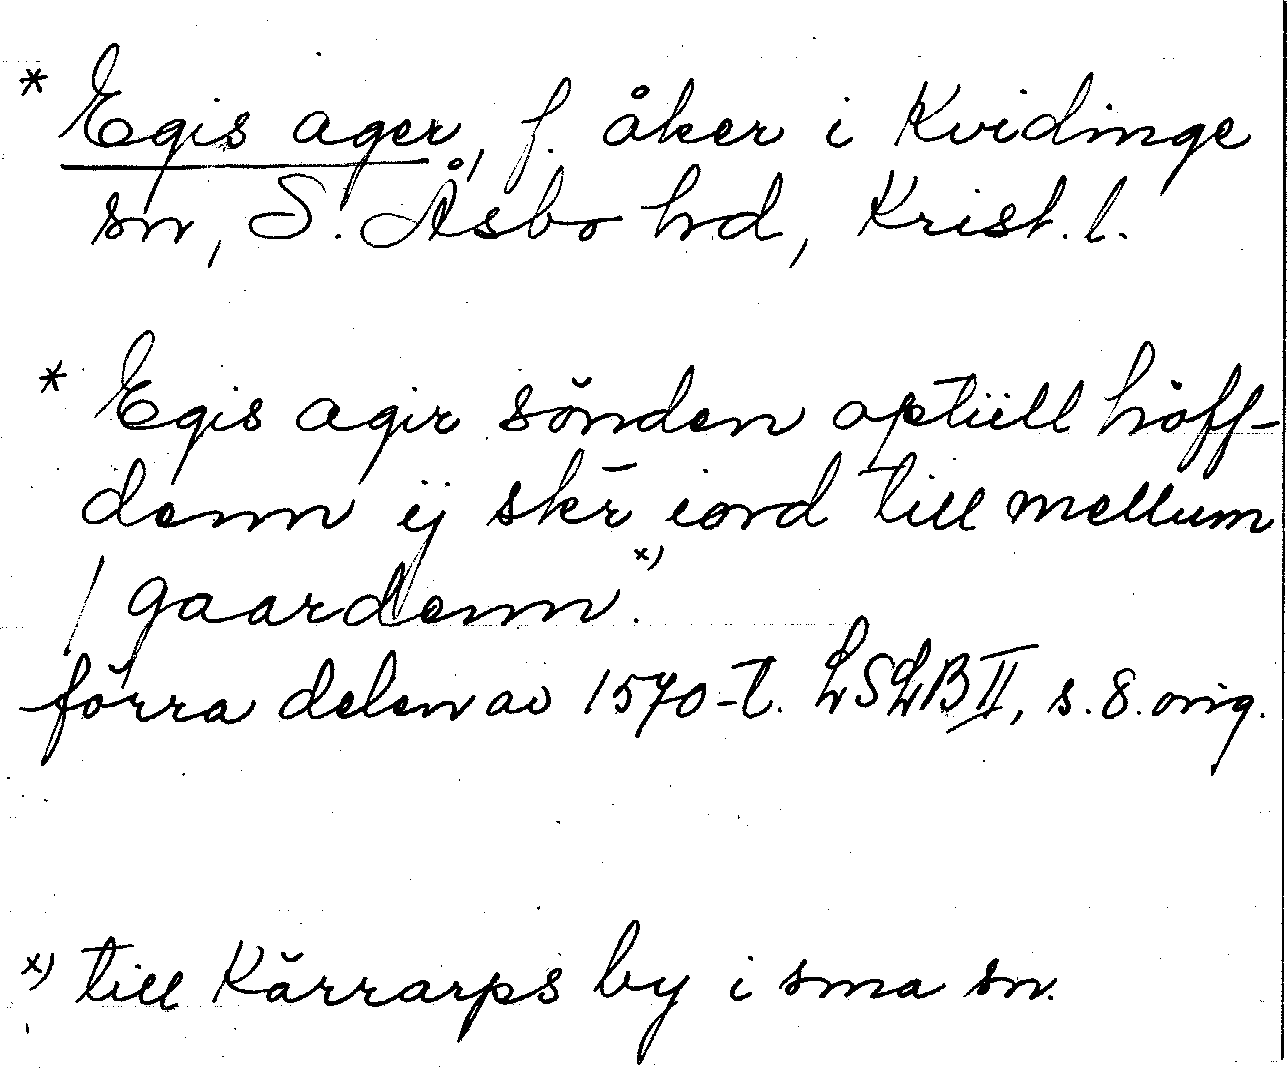 * Egis ager, f. åker i Kvidinge
sn, S. Åsbo hd, Krist. l.
* Egis agir sönden optiill höff-
denn ij skr̄ iord till mellum
/ gaardenn.x)
förra delen av 1570-t. LSLB II, s. 8. orig.
x) till Kärrarps by i sma sn.